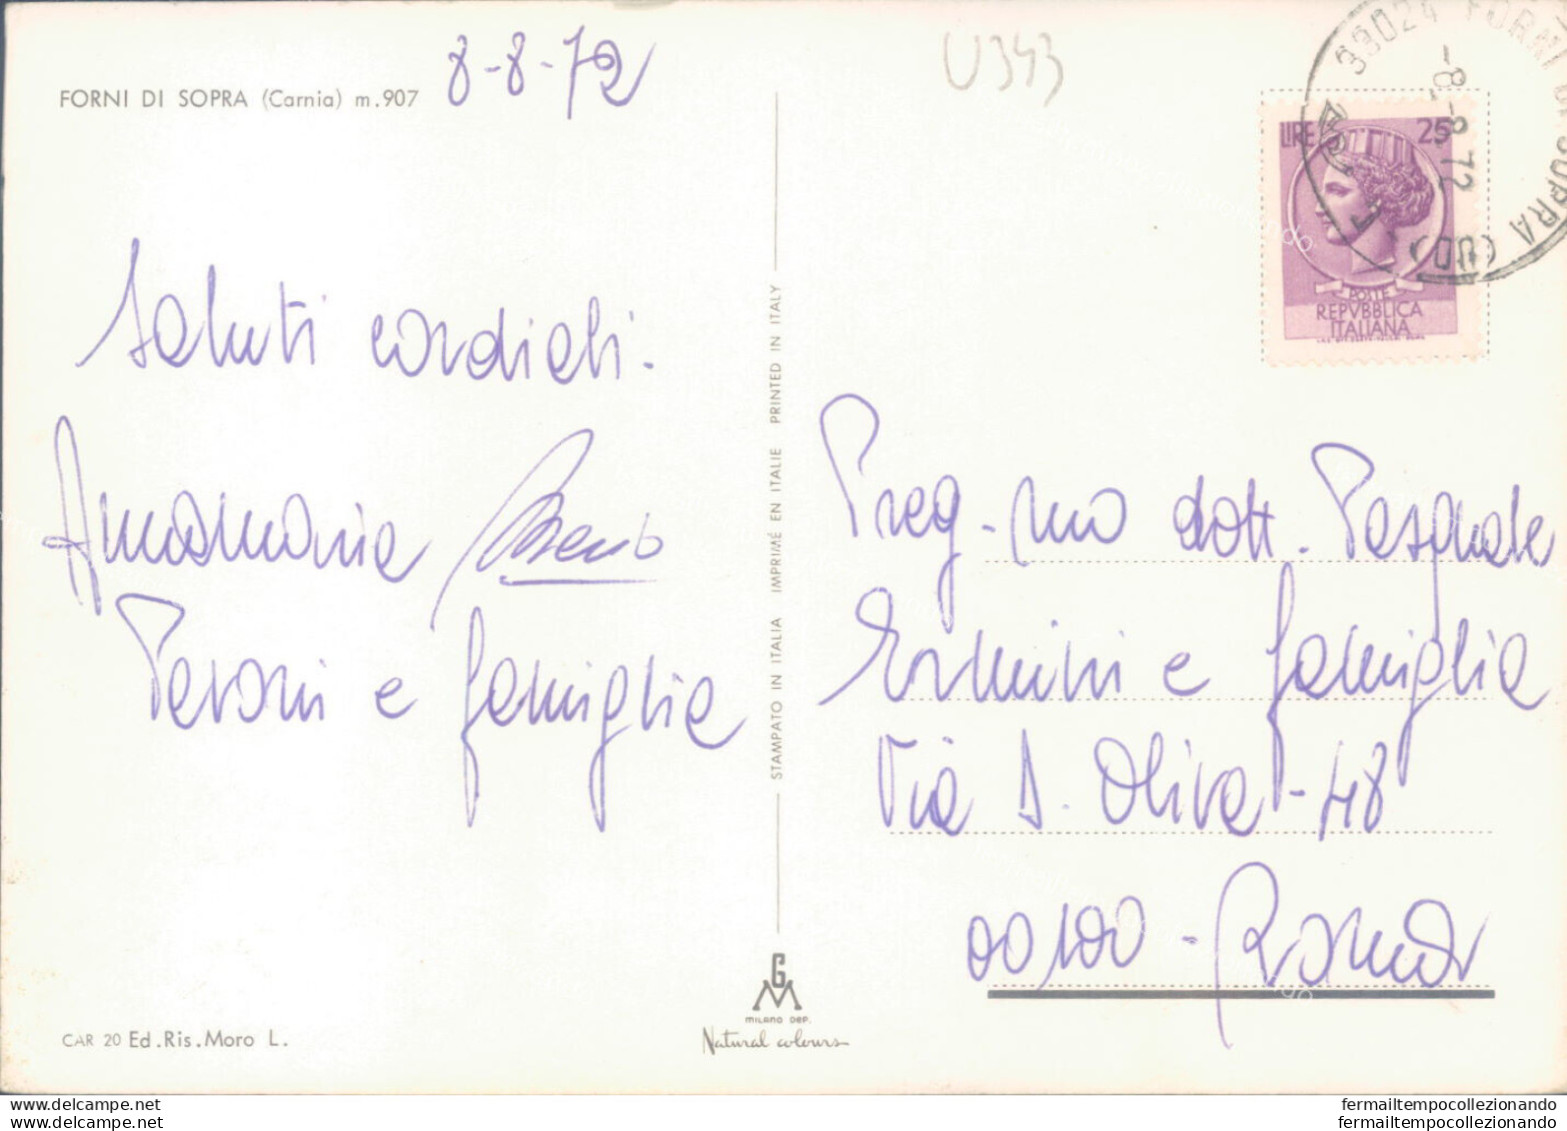 FORNI DI SOPRA (Carnia) m.907
8-8-72
U343
33024 FORNI DI SOPRA (UD)
-8.-8.72
LIRE 25
POSTE
REPVBBLICA
ITALIANA
Saluti cordiali.
Annamaria
Peroni e famiglia
STAMPATO IN ITALIA IMPRIMÉ EN ITALIE PRINTED IN ITALY
Preg.mo dott. Pasquale
Ermini e famiglia
Via D. Oliva - 48
00100 - Roma
G
M
MILANO DEP.
Natural colours
CAR 20 Ed.Ris.Moro L.
saved from delcampe.net
fermailtempocollezionando
fermailtempocollezionando
fermailtempocollezionando